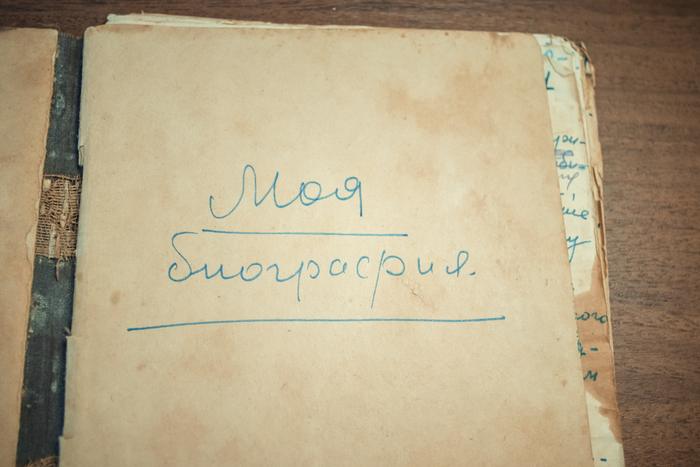 Моя
биография.